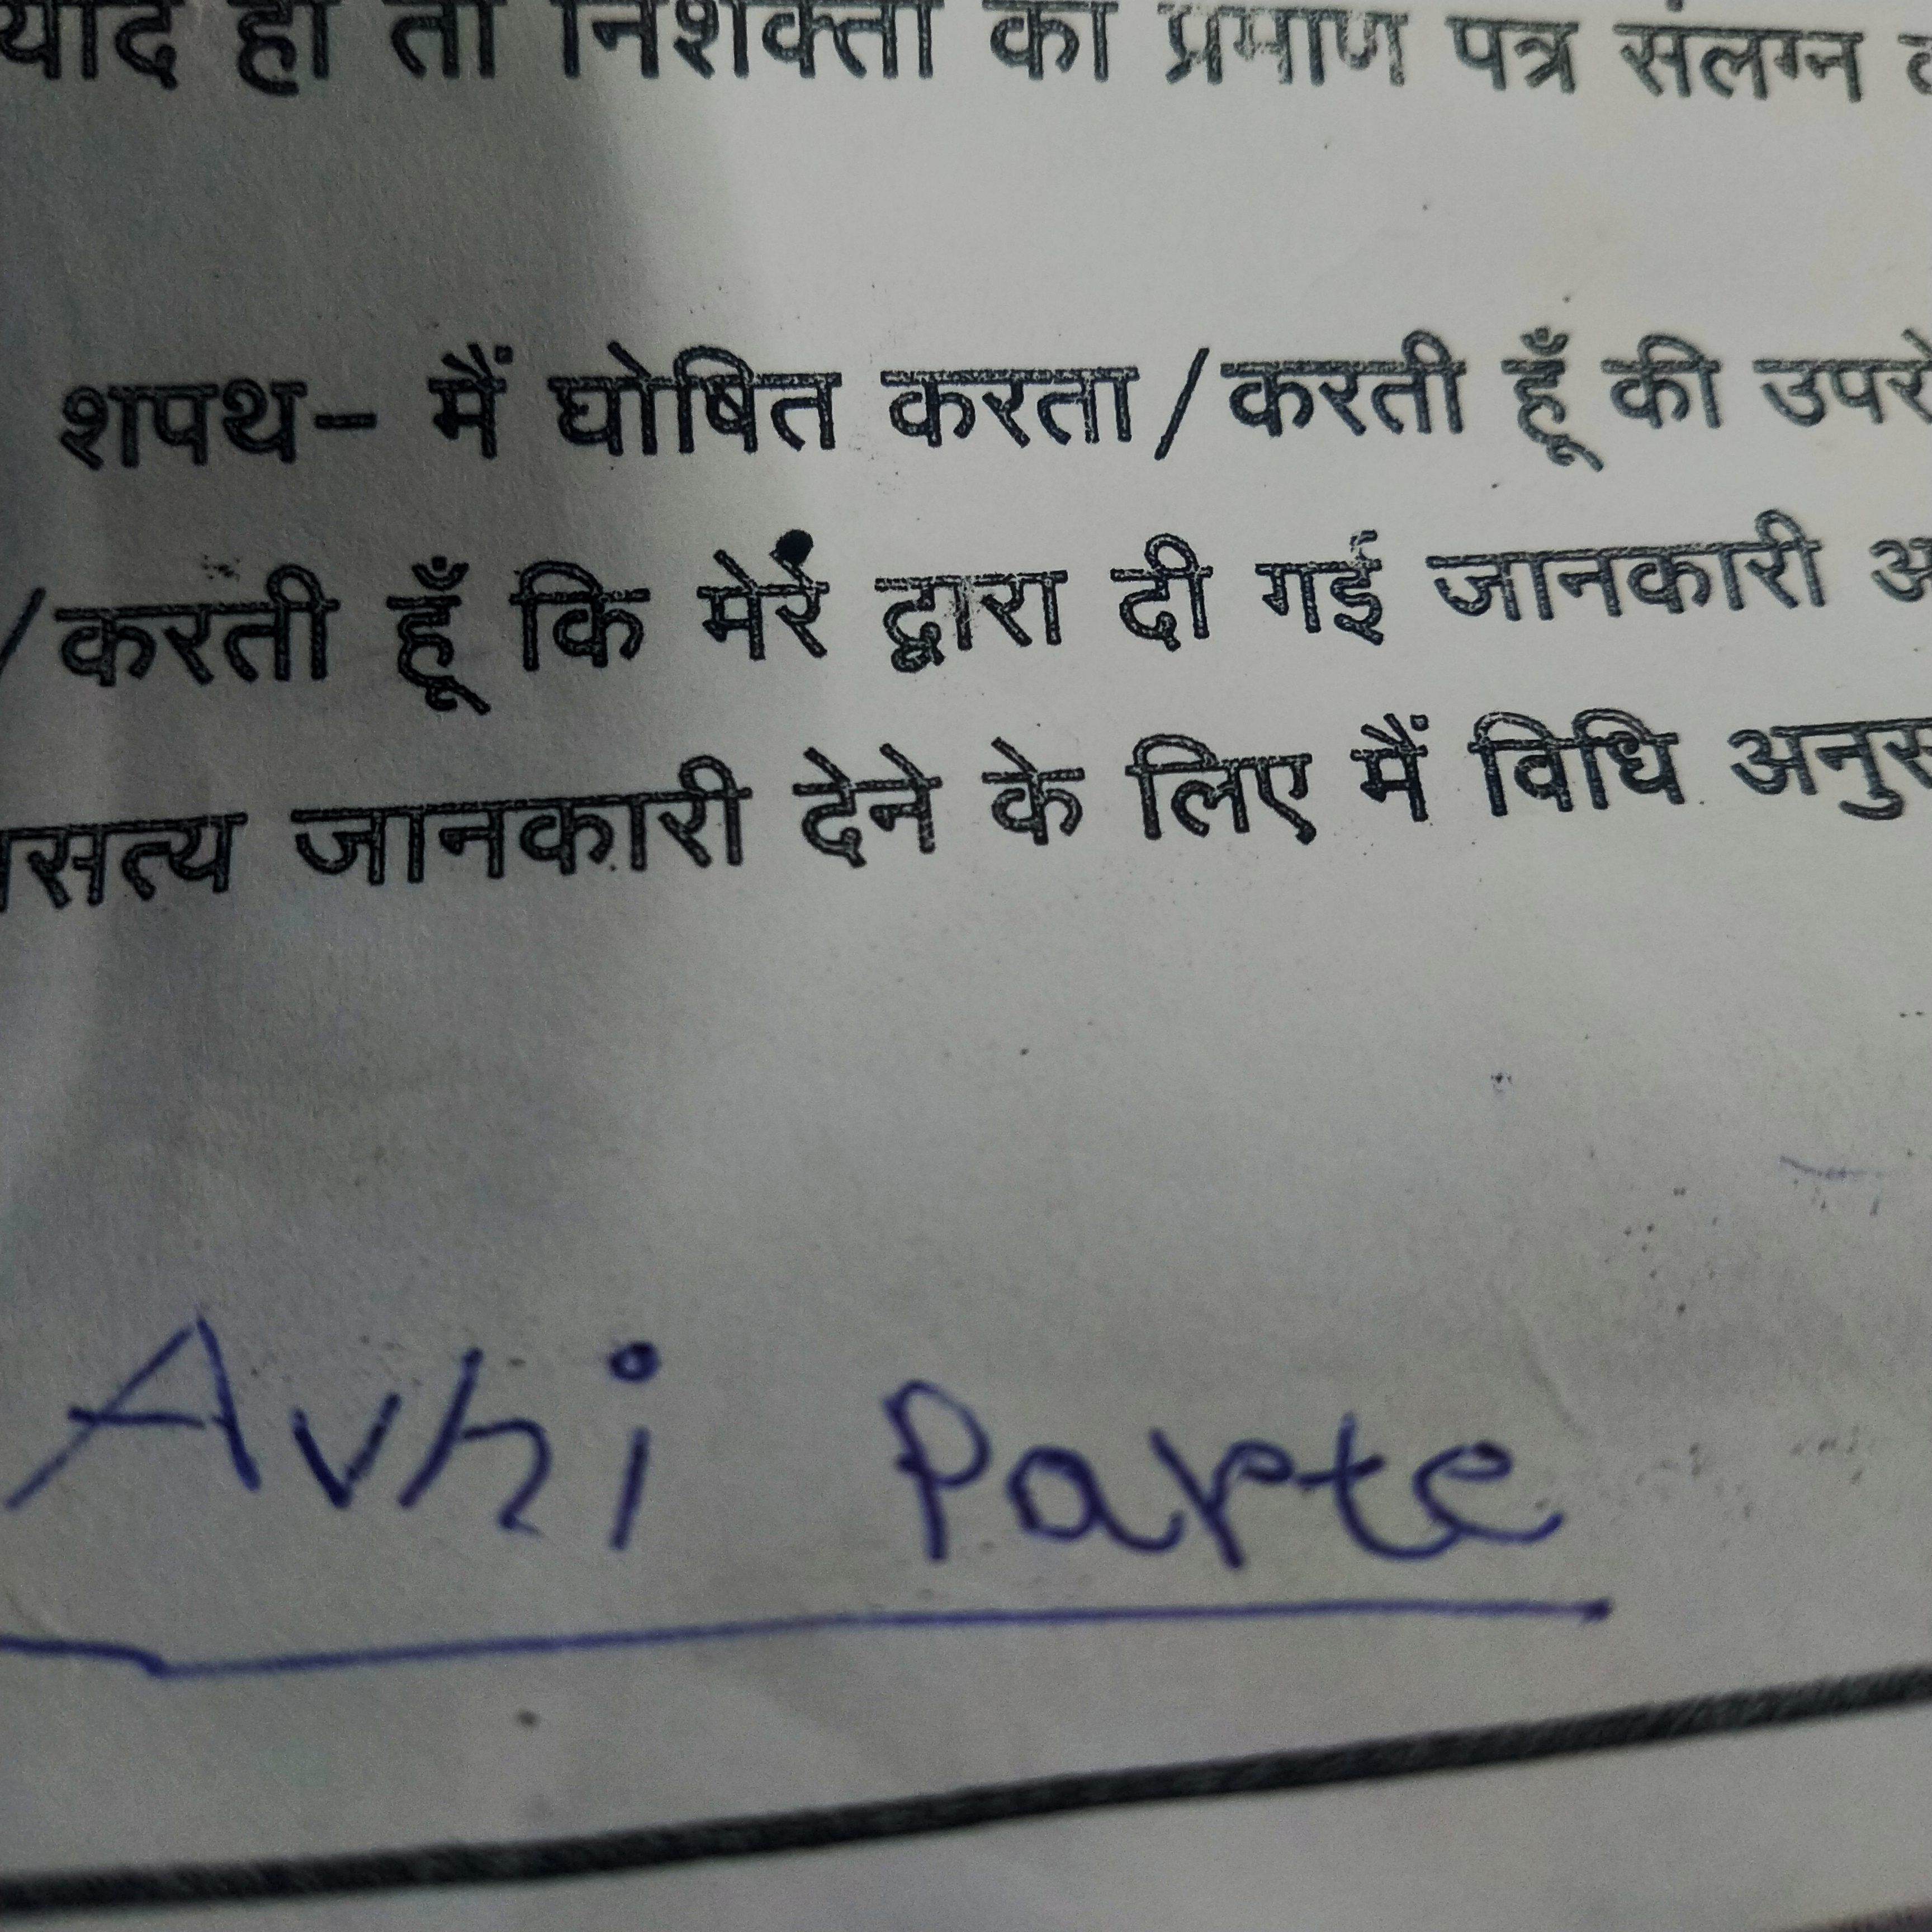 हो तो निशक्ता का प्रमाण पत्र संलग्न
शपथ- मैं घोषित करता/करती हूँ की
/करती हूँ कि मेरे द्वारा दी गई जानकारी
जानकारी देने के लिए मैं विधि
Avhi Parte